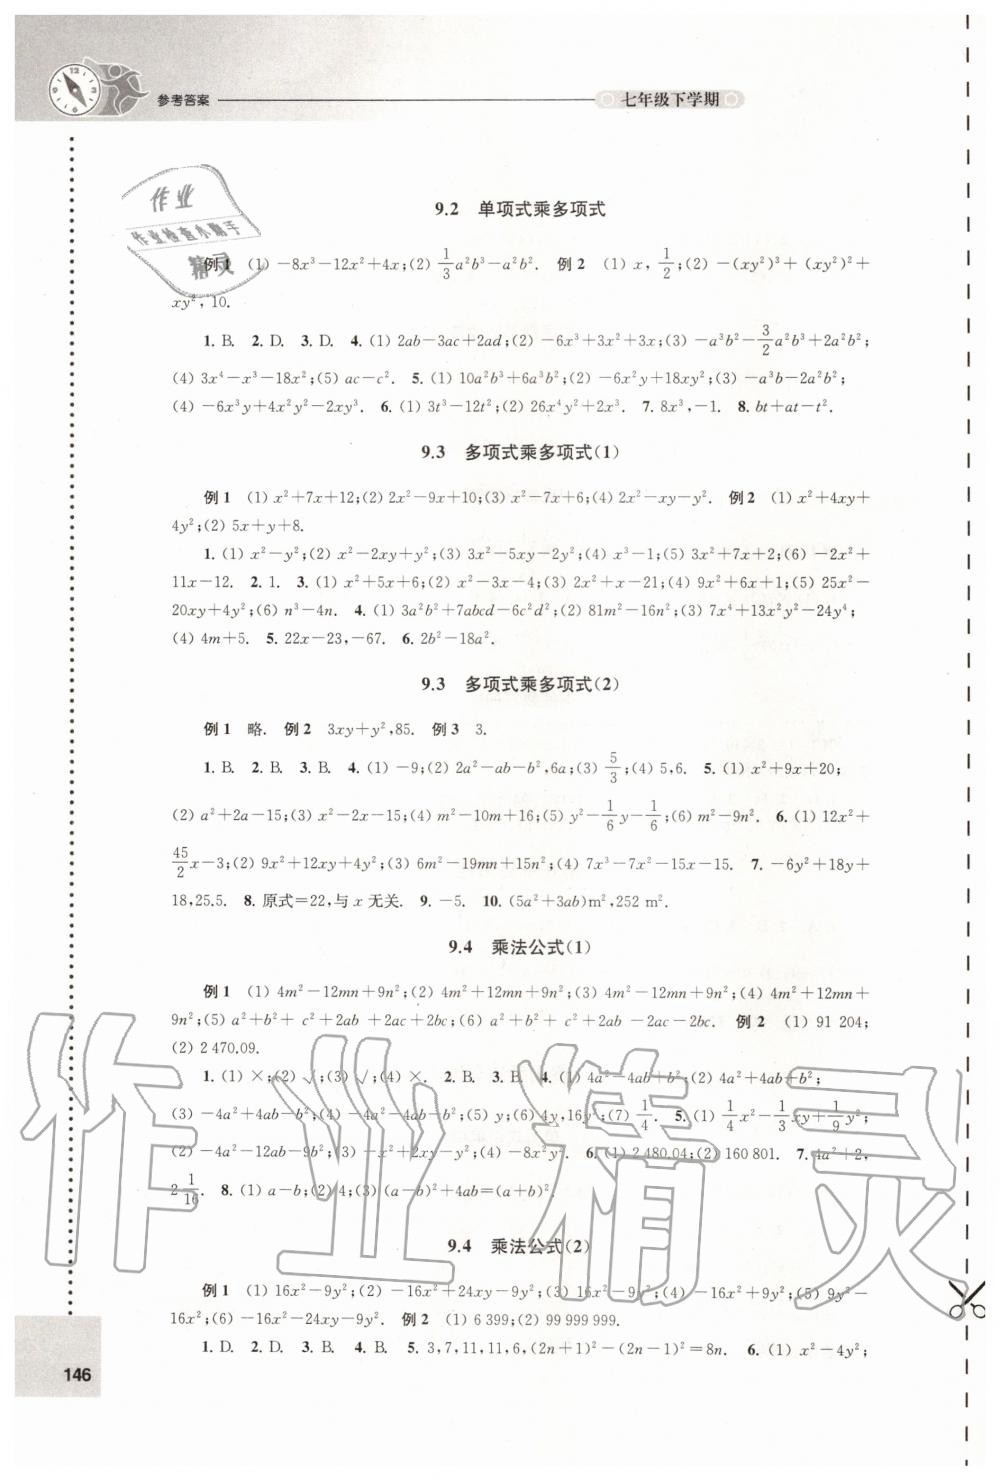 参考答案
七年级下学期
作业
作业检查小助手
精灵
9.2 单项式乘多项式
例1 (1) −8x³−12x²+4x;(2) 1/3a²b³−a²b². 例2 (1) x, 1/2;(2) −(xy²)³+(xy²)²+
xy², 10.
1. B. 2. D. 3. D. 4. (1) 2ab−3ac+2ad;(2) −6x³+3x²+3x;(3) −a³b²−3/2a²b³+2a²b²;
(4) 3x⁴−x³−18x²;(5) ac−c². 5. (1) 10a²b³+6a³b²;(2) −6x²y+18xy²;(3) −a³b−2a²b²;
(4) −6x³y+4x²y²−2xy³. 6. (1) 3t³−12t²;(2) 26x⁴y²+2x³. 7. 8x³,−1. 8. bt+at−t².
9.3 多项式乘多项式(1)
例1 (1) x²+7x+12;(2) 2x²−9x+10;(3) x²−7x+6;(4) 2x²−xy−y². 例2 (1) x²+4xy+
4y²;(2) 5x+y+8.
1. (1) x²−y²;(2) x²−2xy+y²;(3) 3x²−5xy−2y²;(4) x³−1;(5) 3x²+7x+2;(6) −2x²+
11x−12. 2. 1. 3. (1) x²+5x+6;(2) x²−3x−4;(3) 2x²+x−21;(4) 9x²+6x+1;(5) 25x²−
20xy+4y²;(6) n³−4n. 4. (1) 3a²b²+7abcd−6c²d²;(2) 81m²−16n²;(3) 7x⁴+13x²y²−24y⁴;
(4) 4m+5. 5. 22x−23,−67. 6. 2b²−18a².
9.3 多项式乘多项式(2)
例1 略. 例2 3xy+y²,85. 例3 3.
1. B. 2. B. 3. B. 4. (1) −9;(2) 2a²−ab−b²,6a;(3) 5/3;(4) 5,6. 5. (1) x²+9x+20;
(2) a²+2a−15;(3) x²−2x−15;(4) m²−10m+16;(5) y²−1/6y−1/6;(6) m²−9n². 6. (1) 12x²+
45/2x−3;(2) 9x²+12xy+4y²;(3) 6m²−19mn+15n²;(4) 7x³−7x²−15x−15. 7. −6y²+18y+
18,25.5. 8. 原式=22,与x无关. 9. −5. 10. (5a²+3ab)m²,252 m².
9.4 乘法公式(1)
例1 (1) 4m²−12mn+9n²;(2) 4m²+12mn+9n²;(3) 4m²−12mn+9n²;(4) 4m²+12mn+
9n²;(5) a²+b²+c²+2ab+2ac+2bc;(6) a²+b²+c²+2ab−2ac−2bc. 例2 (1) 91 204;
(2) 2 470.09.
1. (1) ×;(2) √;(3) √;(4) ×. 2. B. 3. B. 4. (1) 4a²−4ab+b²;(2) 4a²+4ab+b²;
(3) −4a²+4ab−b²;(4) −4a²−4ab−b²;(5) y;(6) 4y,16y²;(7) 1/4. 5. (1) 1/4x²−1/3xy+1/9y²;
(2) −4a²−12ab−9b²;(3) −x²+2xy−y²;(4) −8x²y². 6. (1) 2 480.04;(2) 160 801. 7. 4a²+2,
2 1/16. 8. (1) a−b;(2) 4;(3) (a−b)²+4ab=(a+b)².
9.4 乘法公式(2)
例1 (1) 16x²−9y²;(2) −16x²+24xy−9y²;(3) 16x²−9y²;(4) −16x²+9y²;(5) 9y²−
16x²;(6) −16x²−24xy−9y². 例2 (1) 6 399;(2) 99 999 999.
1. D. 2. D. 3. B. 4. B. 5. 3,7,11,11,6,(2n+1)²−(2n−1)²=8n. 6. (1) x²−4y²;
146
作业精灵